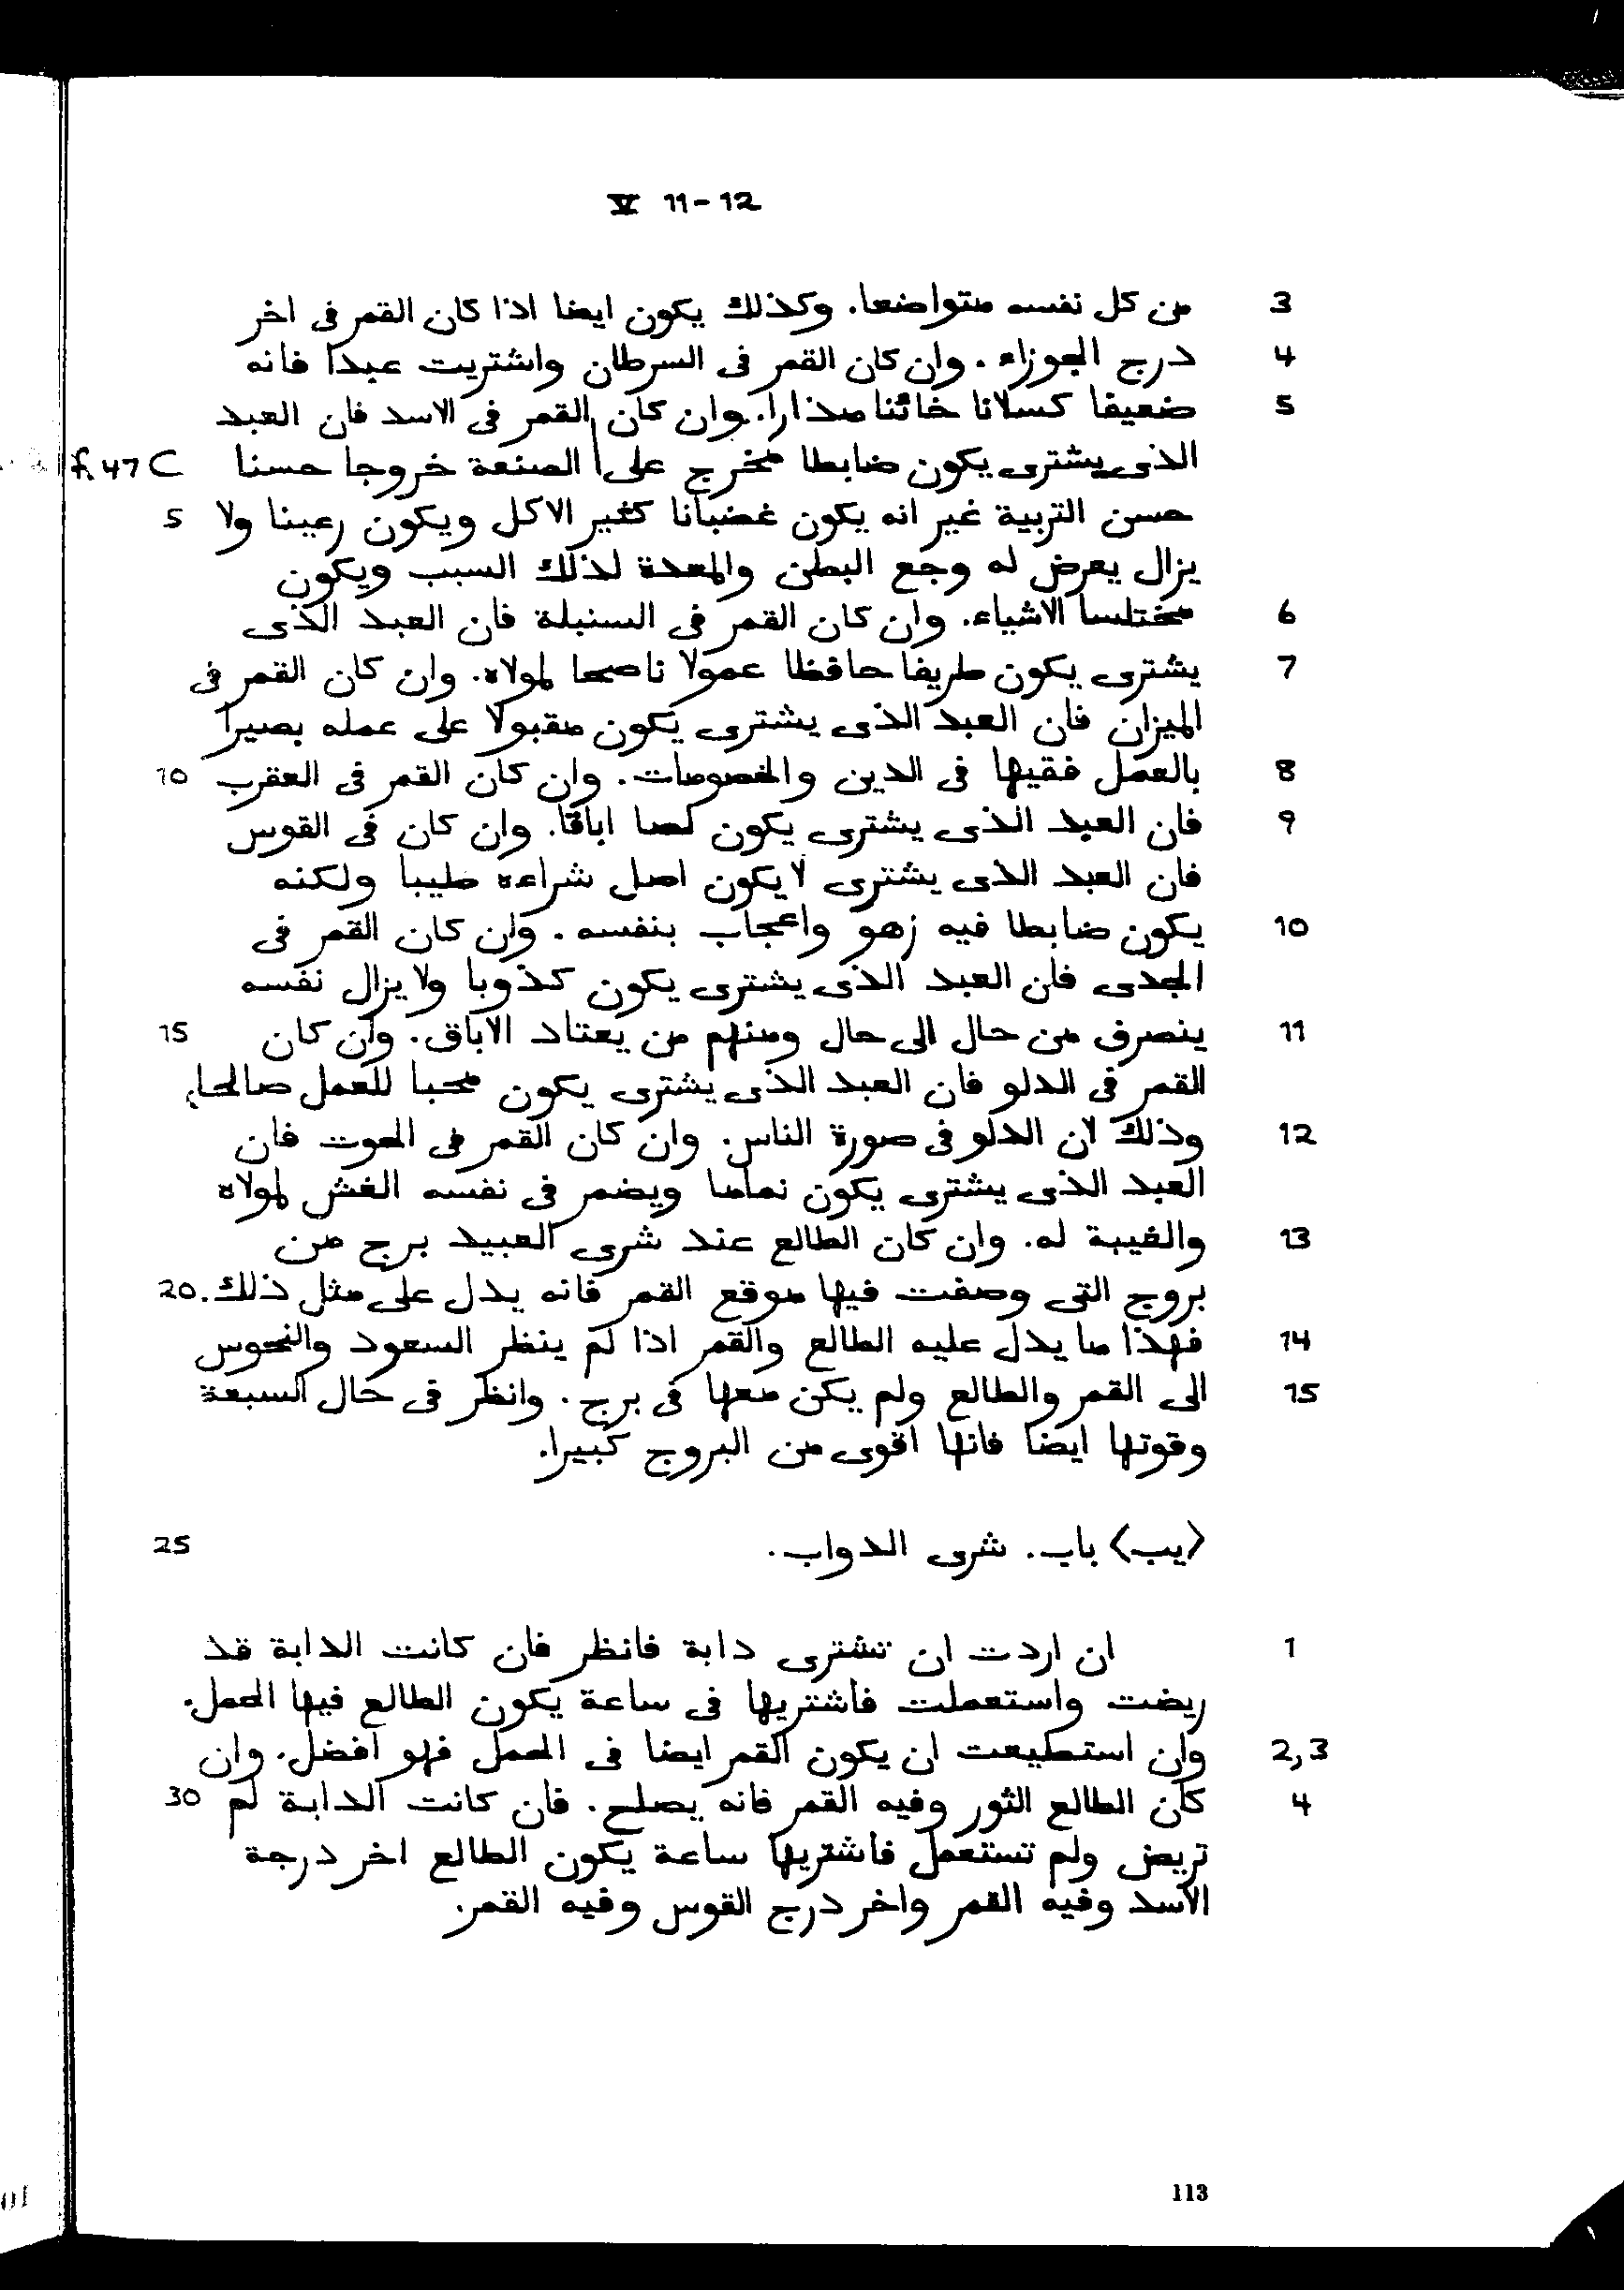 V 11-12
3 من كل نفسه متواضعا. وكذلك يكون ايضا اذا كان القمر فى اخر
4 درج الجوزاء. وان كان القمر فى السرطان واشتريت عبدا فانه
5 ضعيفا كسلانا خائنا مذارا. وان كان القمر فى الاسد فان العبد
الذى يشترى يكون ضابطا مخرج على| الصنعة خروجا حسنا f. 47 C
حسن التربية غير انه يكون غضبانا كثير الاكل ويكون رعينا ولا 5
يزال يعرض له وجع البطن والمعدة لذلك السبب ويكون
6 مختلسا الاشياء. وان كان القمر فى السنبلة فان العبد الذى
7 يشترى يكون طريفا حافظا عمولا ناصحا لمولاه. وان كان القمر فى
الميزان فان العبد الذى يشترى يكون مقبولا على عمله بصيرا
8 بالعمل فقيها فى الدين والخصومات. وان كان القمر فى العقرب 10
9 فان العبد الذى يشترى يكون لصا اباقا. وان كان فى القوس
فان العبد الذى يشترى لا يكون اصل شراءه طيبا ولكنه
10 يكون ضابطا فيه زهو واعجاب بنفسه. وان كان القمر فى
الجدى فان العبد الذى يشترى يكون كذوبا ولا يزال نفسه
11 ينصرف من حال الى حال ومنهم من يعتاد الاباق. وان كان 15
القمر فى الدلو فان العبد الذى يشترى يكون محبا للعمل صالحا،
12 وذلك لان الدلو فى صورة الناس. وان كان القمر فى الحوت فان
العبد الذى يشترى يكون نماما ويضمر فى نفسه الغش لمولاه
13 والغيبة له. وان كان الطالع عند شرى العبيد برج من
بروج التى وصفت فيها موقع القمر فانه يدل على مثل ذلك. 20
14 فهذا ما يدل عليه الطالع والقمر اذا لم ينظر السعود والنحوس
15 الى القمر والطالع ولم يكن معها فى برج. وانظر فى حال السبعة
وقوتها ايضا فانها اقوى من البروج كبيرا.
⟨يب⟩ باب. شرى الدواب. 25
1 ان اردت ان تشترى دابة فانظر فان كانت الدابة قد
ريضت واستعملت فاشتريها فى ساعة يكون الطالع فيها الحمل.
2,3 وان استطيعت ان يكون القمر ايضا فى الحمل فهو افضل. وان
4 كان الطالع الثور وفيه القمر فانه يصلح. فان كانت الدابة لم 30
تريض ولم تستعمل فاشتريها ساعة يكون الطالع اخر درجة
الاسد وفيه القمر واخر درج القوس وفيه القمر.
113